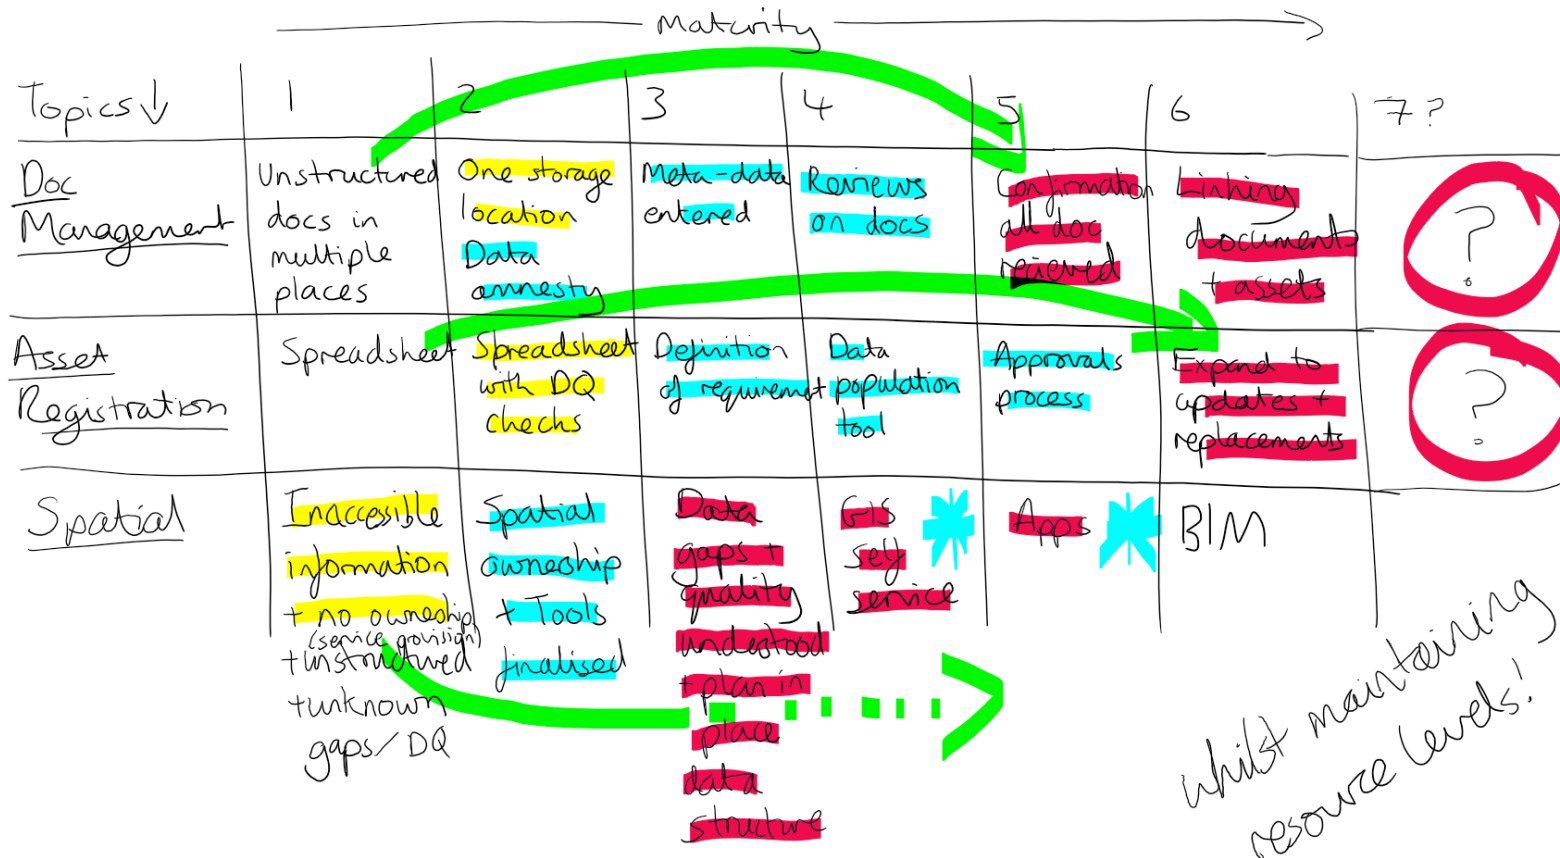 Maturity
Topics ↓
1
2
3
4
5
6
7?
Doc
Management
Unstructured
docs in
multiple
places
One storage
location
Data
amnesty
Meta-data
entered
Reviews
on docs
Confirmation
all doc
recieved
Linking
documents
+ assets
?
Asset
Registration
Spreadsheet
Spreadsheet
with DQ
checks
Definition
of requiremet
Data
population
tool
Approvals
process
Expand to
updates +
replacements
?
Spatial
Inaccessible
information
+ no ownership
(service provision)
+unstructured
+unknown
gaps/DQ
Spatial
ownership
+ Tools
finalised
Data
gaps +
quality
understood
+ plan in
place
data
structure
GIS
self
service
Apps
BIM
whilst maintaining
resource levels!